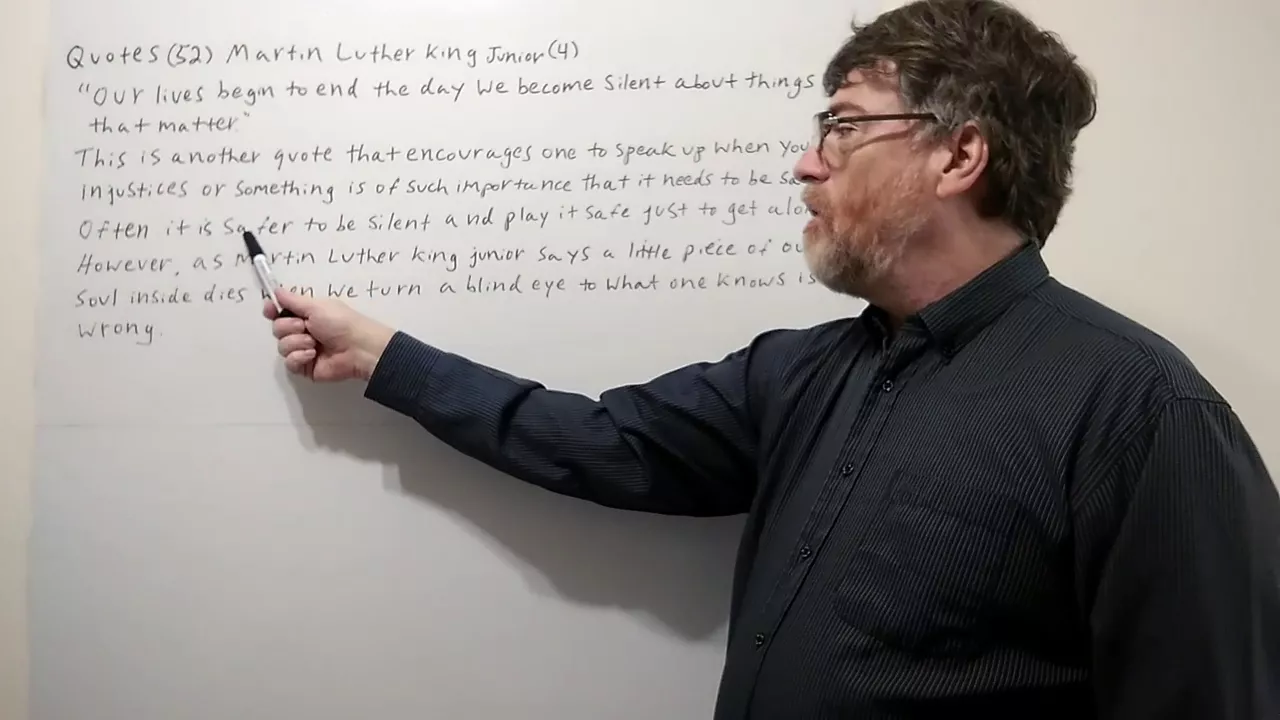 Quotes (52) Martin Luther King Junior (4)
"Our lives begin to end the day we become silent about things
that matter."
This is another quote that encourages one to speak up when you
injustices or something is of such importance that it needs to be
Often it is safer to be silent and play it safe just to get
However, as Martin Luther king junior says a little piece of
soul inside dies when we turn a blind eye to what one knows is
wrong.